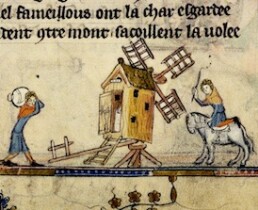 el fameillous ont la char esgardee
dent ꝯtre mont sacoillent la uolee